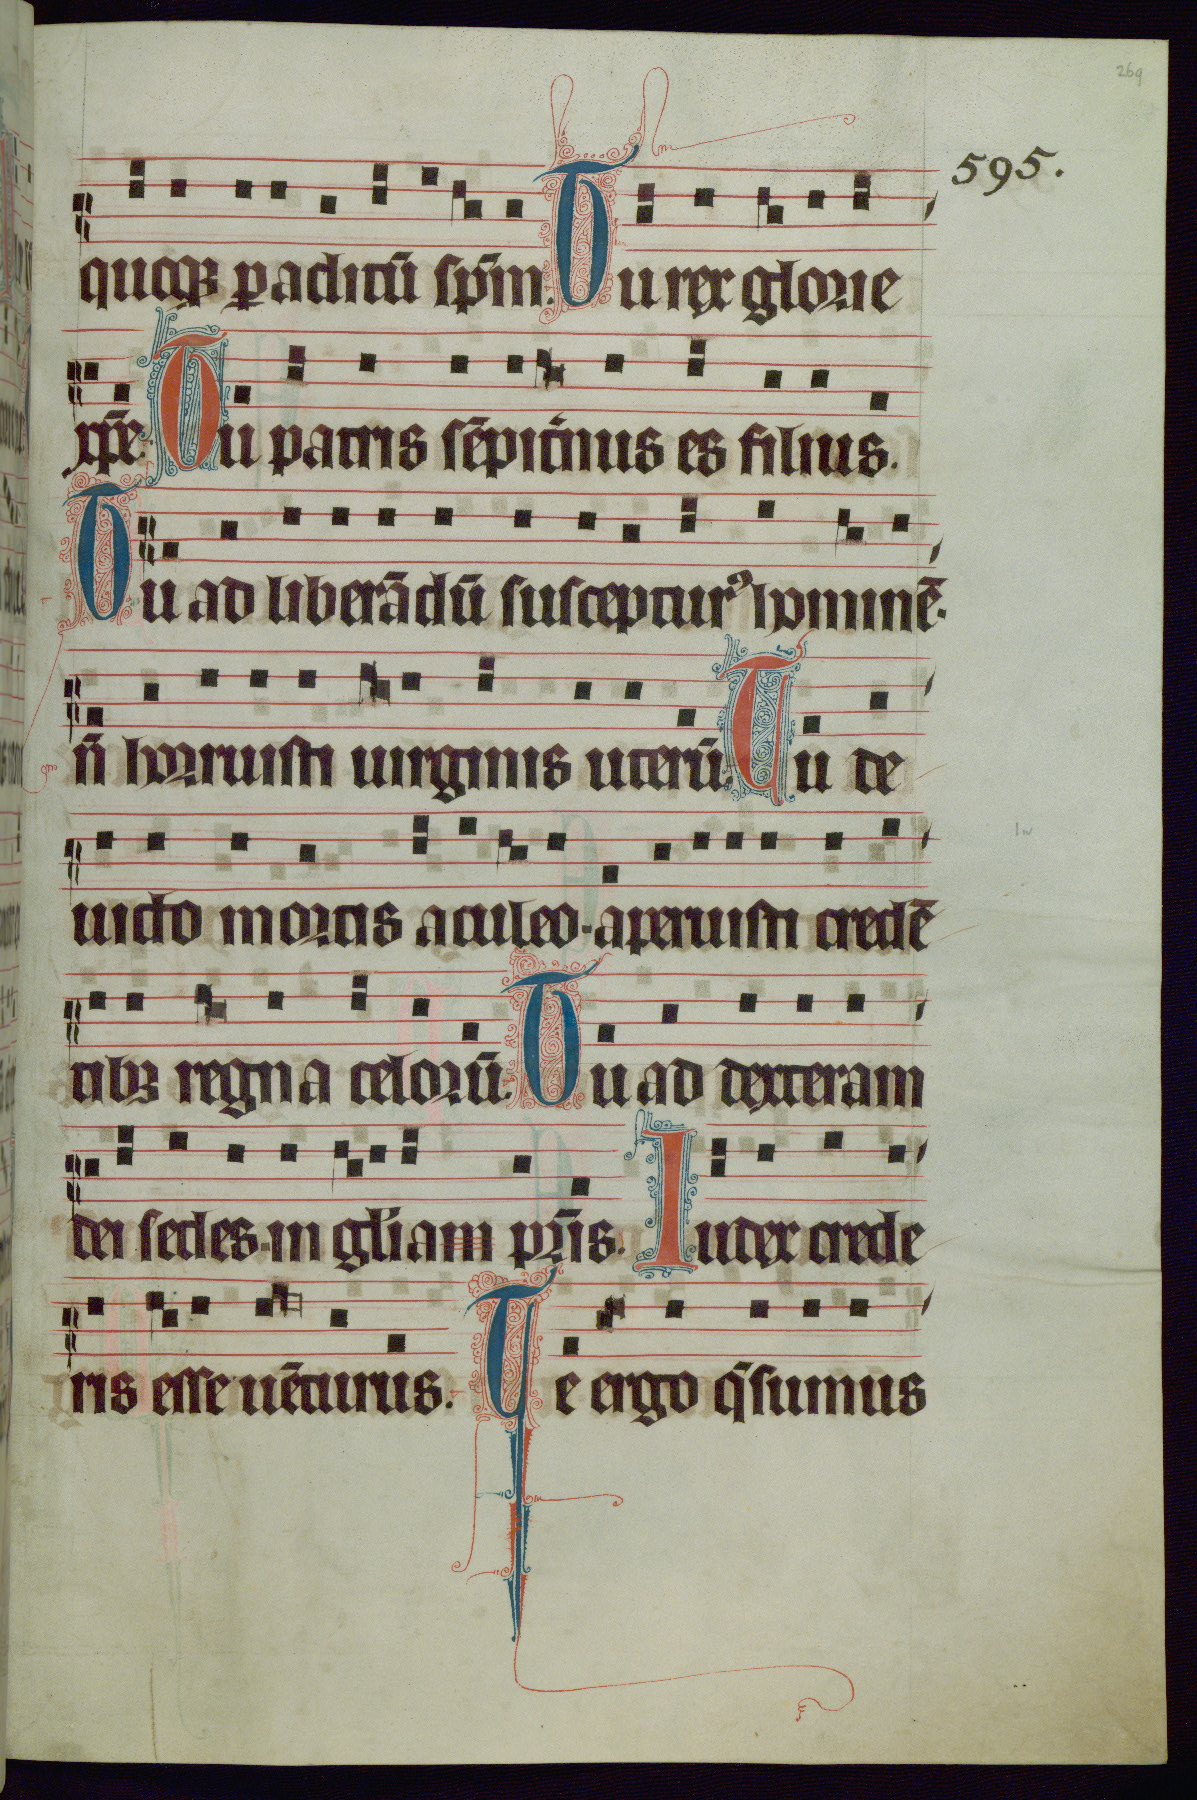 269
595.
quoqꝫ paꝛaclitū sp̄m. Tu rex glorie
xp̄e. Tu patris sēpit̄nus es filius.
Tu ad liberādū suscepturꝰ hominē.
n̄ horruisti uirginis uterū. Tu de
uicto mortis aculeo. aperuisti credē
tibꝫ regna celorū. Tu ad dexteram
dei sedes. in gl̄iam pr̄is. Iudex crede
ris esse uēturus. Te ergo q̄sumus